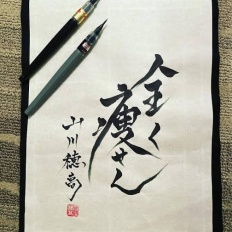 全く
痩せん
山川穂高